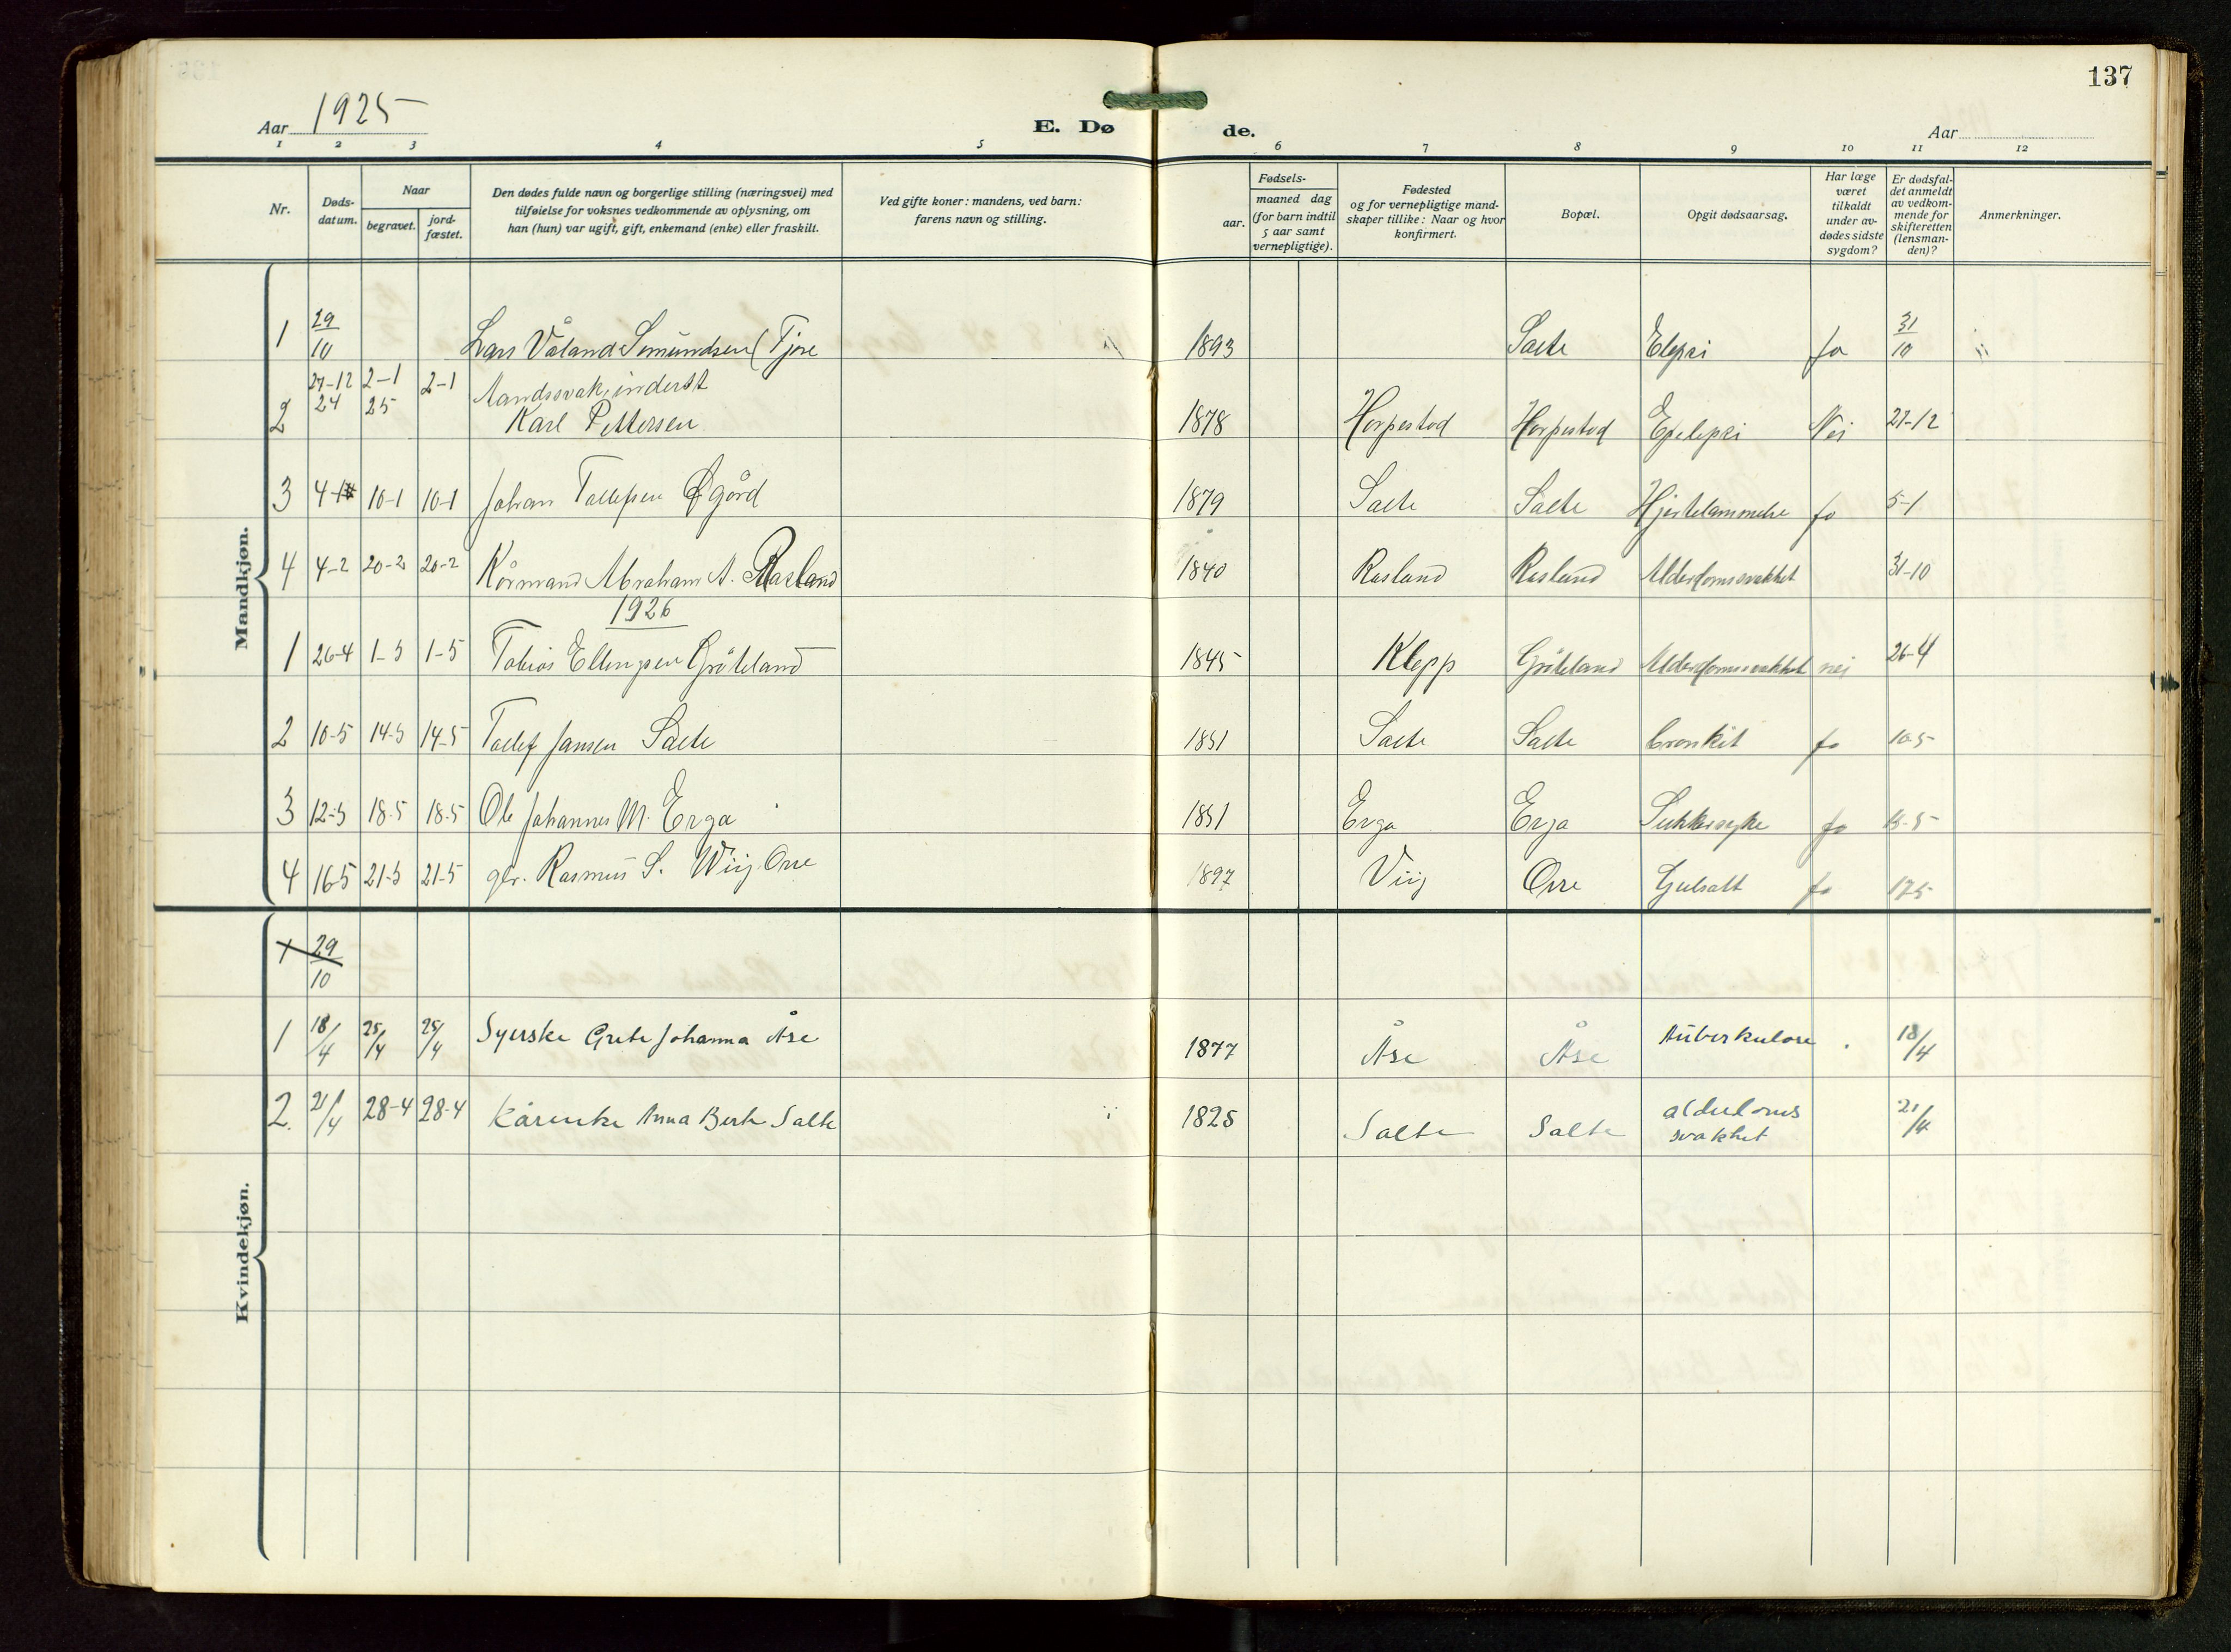 137
Aar 1925
E. Dø de.
Aar
1 2 3 4 5 6 7 8 9 10 11 12
Nr.
Døds-datum.
Naar
begravet.
jord-fæstet.
Den dødes fulde navn og borgerlige stilling (næringsvei) med
tilføielse for voksnes vedkommende av oplysning, om
han (hun) var ugift, gift, enkemand (enke) eller fraskilt.
Ved gifte koner: mandens, ved barn:
farens navn og stilling.
Fødsels-
aar.
maaned dag
(for barn indtil
5 aar samt
vernepligtige).
Fødested
og for vernepligtige mand-
skaper tillike: Naar og hvor
konfirmert.
Bopæl.
Opgit dødsaarsag.
Har læge
været
tilkaldt
under av-
dødes sidste
sygdom?
Er dødsfal-
det anmeldt
av vedkom-
mende for
skifteretten
(lensman-
den)?
Anmerkninger.
Mandkjøn.
1 29/10 Lars Våland Smundsen (Tjøre 1893 Salte Elepsi ja 31/10
2 27-12 24 2-1 25 2-1 Aandssvak, inderst
Karl Pettersen 1878 Horpestad Horpestad Epelepsi Nei 27-12
3 4-1 10-1 10-1 Johan Tollefsen Øgård 1879 Salte Salte Hjertelammelse ja 5-1
4 4-2 20-2 20-2 Kårmand Abraham A. Rasland 1840 Rasland Rasland Alderdomssvakhet 31-10
1926
1 26-4 1-5 1-5 Tobias Ellingsen Gröteland 1845 Klepp Gröteland Alderdomssvakhet nei 26-4
2 10-5 14-5 14-5 Tollef Jansen Salte 1851 Salte Salte bronkit ja 10-5
3 12-5 18-5 18-5 Ole Johannes M. Erga 1851 Erga Erga Sukkersyke ja 15-5
4 16-5 21-5 21-5 gbr. Rasmus S. Wiig Orre 1897 Viig Orre Gulsott ja 17-5
Kvindekjøn.
1 29/10
1 18/4 25/4 25/4 Syerske Grete Johanna Åse 1877 Åse Åse tuberkulose 18/4
2. 21/4 28-4 28-4 Kårenke Anna Berte Salte 1825 Salte Salte alderdoms
svakhet 21/4